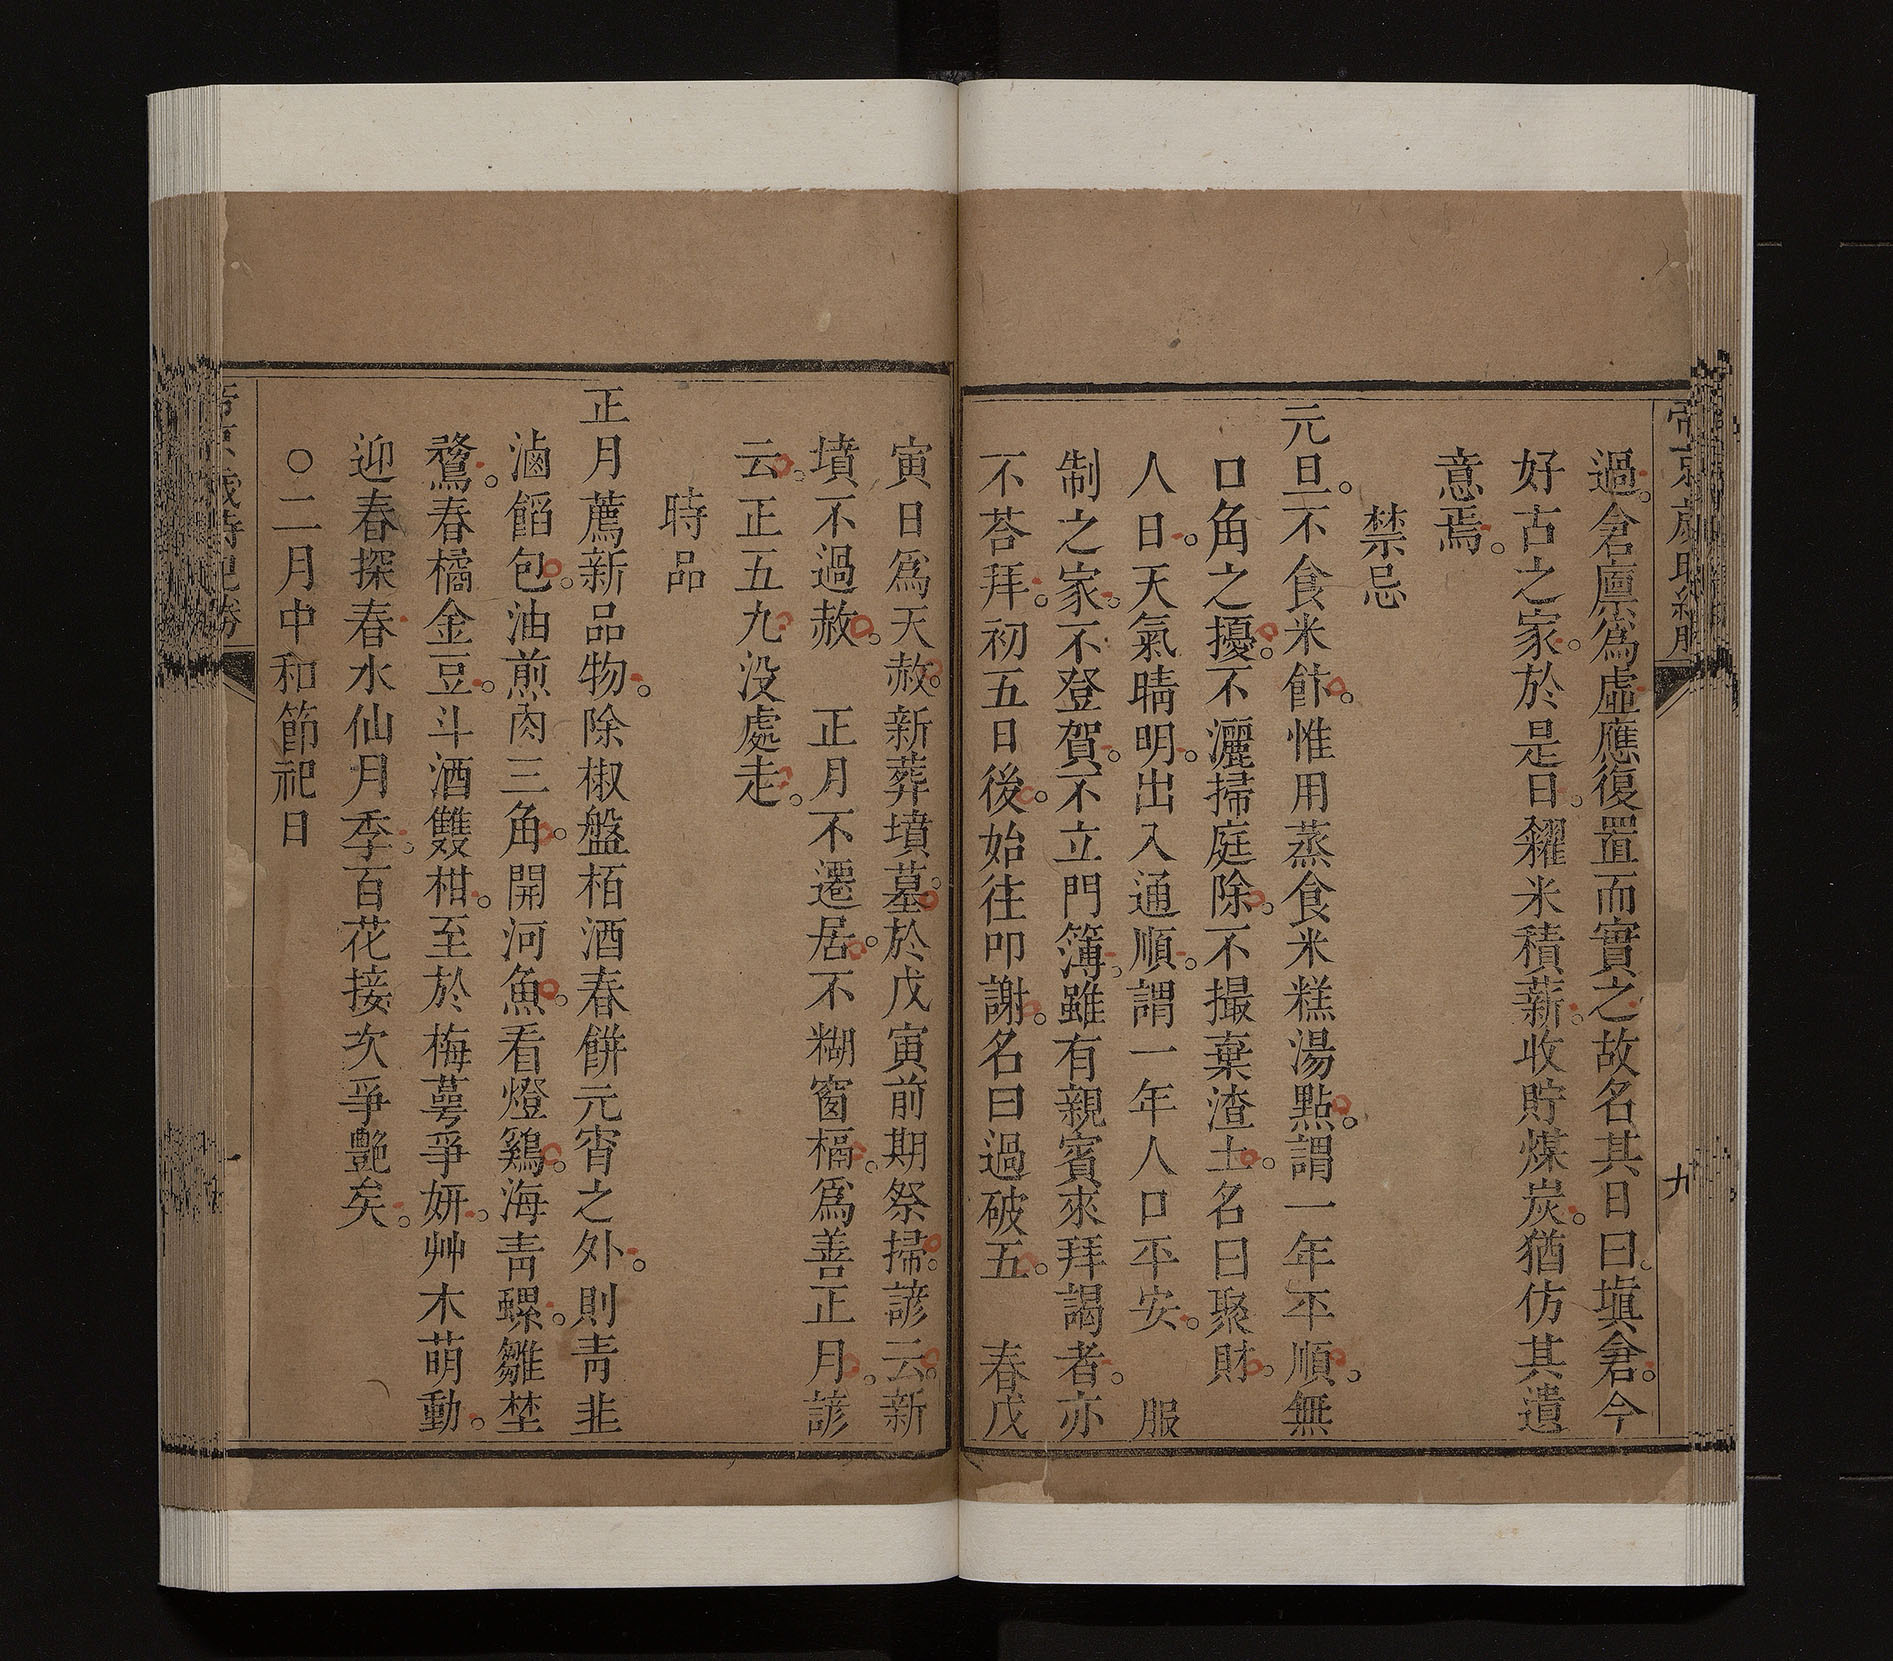 過。倉廩爲虛應復置而實之故名其日曰。塡倉。今
好古之家。於是日。糴米積薪。收貯煤炭。猶仿其遺
意焉。
禁忌
元旦。不食米飰。惟用蒸食米糕湯點。謂一年平順。無
口角之擾。不灑掃庭除。不撮棄渣土。名曰聚財。
人日。天氣晴明。出入通順。謂一年人口平安。 服
制之家。不登賀。不立門簿。雖有親賓來拜謁者。亦
不荅拜。初五日後。始往叩謝。名曰過破五。 春戊
九
寅日爲天赦。新葬墳墓。於戊寅前期祭掃。諺云。新
墳不過赦。 正月不遷居。不糊窗槅。爲善正月。諺
云。正五九没處走。
時品
正月薦新品物。除椒盤栢酒春餅元宵之外。則青韭
滷餡包。油煎肉三角。開河魚。看燈鷄。海青螺。雛野
鶩。春橘金豆。斗酒雙柑。至於梅萼爭妍。艸木萌動。
迎春探春水仙月季。百花接次爭艷矣。
○二月中和節祀日